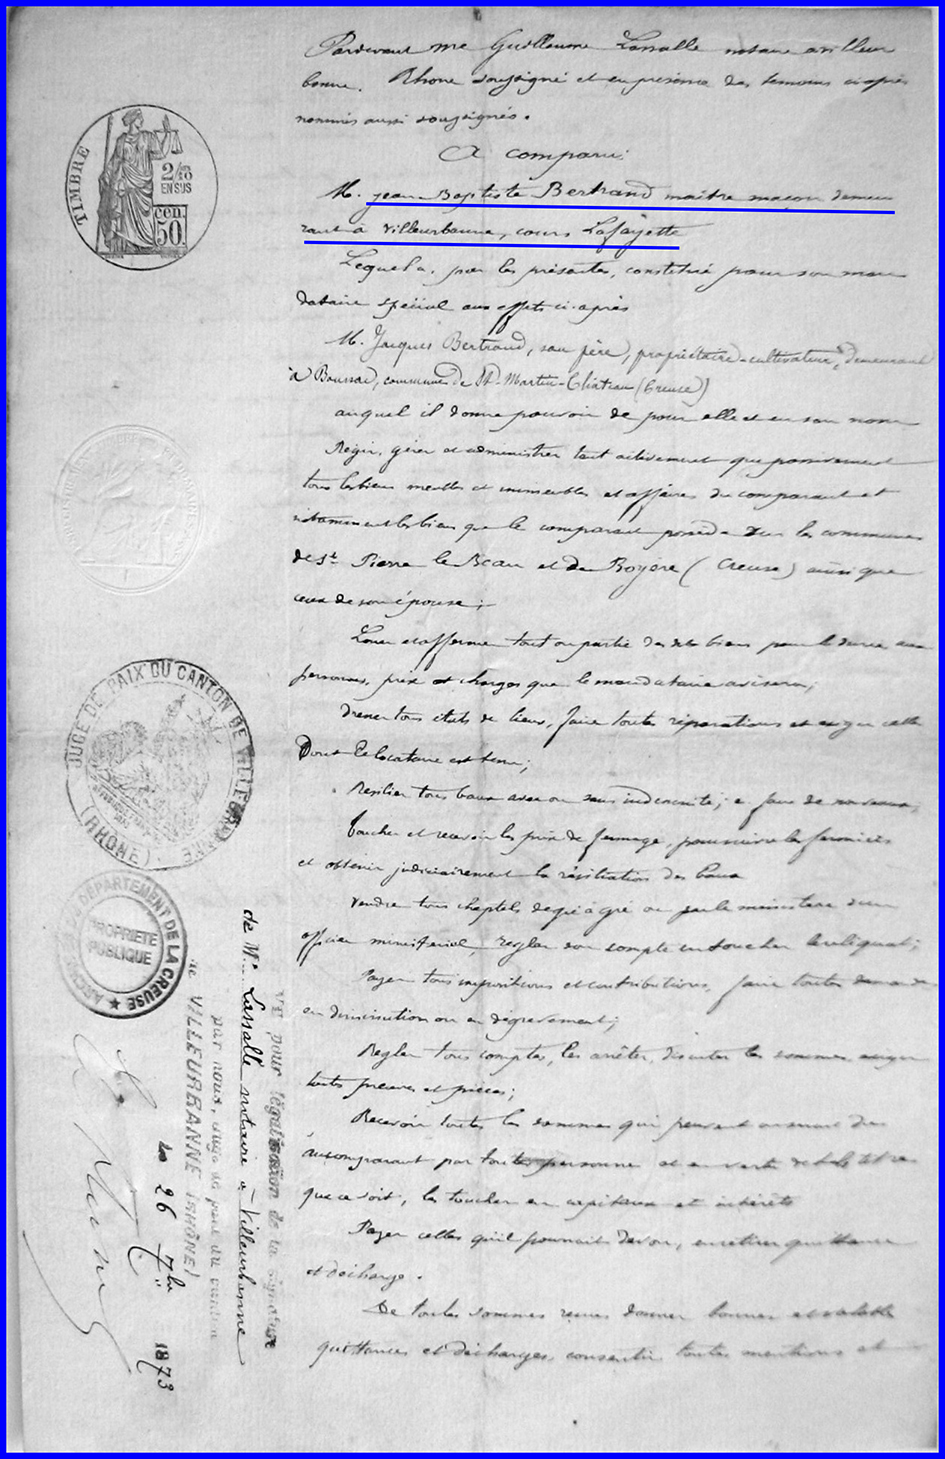 Pardevant me Guillaume Lassalle notaire à villeur
banne. Rhone soussigné et en présence des temoins ci après
nommés aussi soussignés.
A comparu:
M. jean Baptiste Bertrand maitre maçon demeu
rant à Villeurbanne, cours Lafayette
Lequel a, par les présentes, constitué pour son man
dataire spécial aux effets ci-après
M. Jacques Bertrand, son père, propriétaire-cultivateur, demeurant
à Boussac, commune de St Martin-Château (Creuse)
auquel il donne pouvoir de pour elle et en son nom
Régir, gérer et administrer tant activement que passivement
tous les biens meubles et immeubles et affaires du comparant et
notamment les biens que le comparant possède dans les communes
de St Pierre le et de Royère (Creuse) ainsi que
ceux de son épouse;
Louer et affermer tout ou partie des dits biens pour la durée aux
personnes, prix et charges que le mandataire avisera;
Dresser tous états de lieux, faire toutes réparations et exiger celles
Dont le locataire est tenu;
Resilier tous baux avec ou sans indemnité; en faire de nouveaux
Toucher et recevoir les prix de fermage, poursuivre les fermiers
et obtenir judiciairement la résiliation des baux
Vendre tous cheptels de gré à gré ou par le ministère d'un
officier ministériel, régler son compte en toucher le reliquat;
Payer tous impositions et contributions, faire toutes demandes
en diminution ou en dégrèvement;
Regler tous comptes, les arrêter, discuter les sommes, exiger
toutes preuves et pièces;
Recevoir toutes les sommes qui peuvent
au comparant par toutes personne et en vertu de titre
que ce soit, les toucher en capitaux et intérêts
Payer celles qu'il pourrait devoir, en retirer quittance
et décharge.
De toutes sommes reçues donner bonnes et valables
quittances et décharges, consentir toutes mentions et
TIMBRE
2/10
EN SUS
cen.
50.
JUGE DE PAIX DU CANTON DE VILLEURBANNE
(RHÔNE)
ARCHIVES DU DÉPARTEMENT DE LA CREUSE
PROPRIÉTÉ
PUBLIQUE
Vu pour légalisation de la signature
de Me Lassalle notaire à Villeurbanne
par nous, Juge de paix du canton
de VILLEURBANNE (RHÔNE)
Le 26 7bre 1873